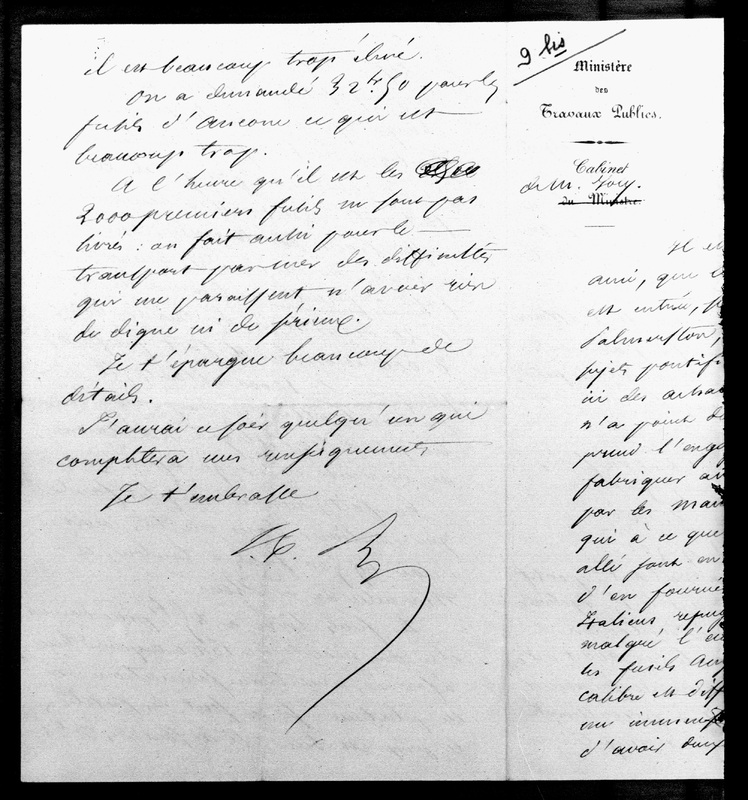 il est beaucoup trop élevé.
On a demandé 32 fr 50 pour les
fusils d'Ancone ce qui est
beaucoup trop.
A l'heure qu'il est les
2000 premiers fusils ne sont pas
livrés : on fait aussi pour le
transport par mer des difficultés
qui me paraissent n'avoir rien
de digne ni de sérieux.
Je t'épargne beaucoup de
détails.
J'aurai ce soir quelqu'un qui
complètera mes renseignements
Je t'embrasse
9 bis
Ministère
des
Travaux Publics.
Cabinet
de M.
du Ministre.
Il est
ami, que
est entrée,
Palmerston,
sujets pontif
ni des
n'a point de
prend l'enga
fabriquer
par les
qui à ce que
allé sont en
d'en fourni
Italiens
malgré l'e
les fusils
calibre est diff
d'avoir deux